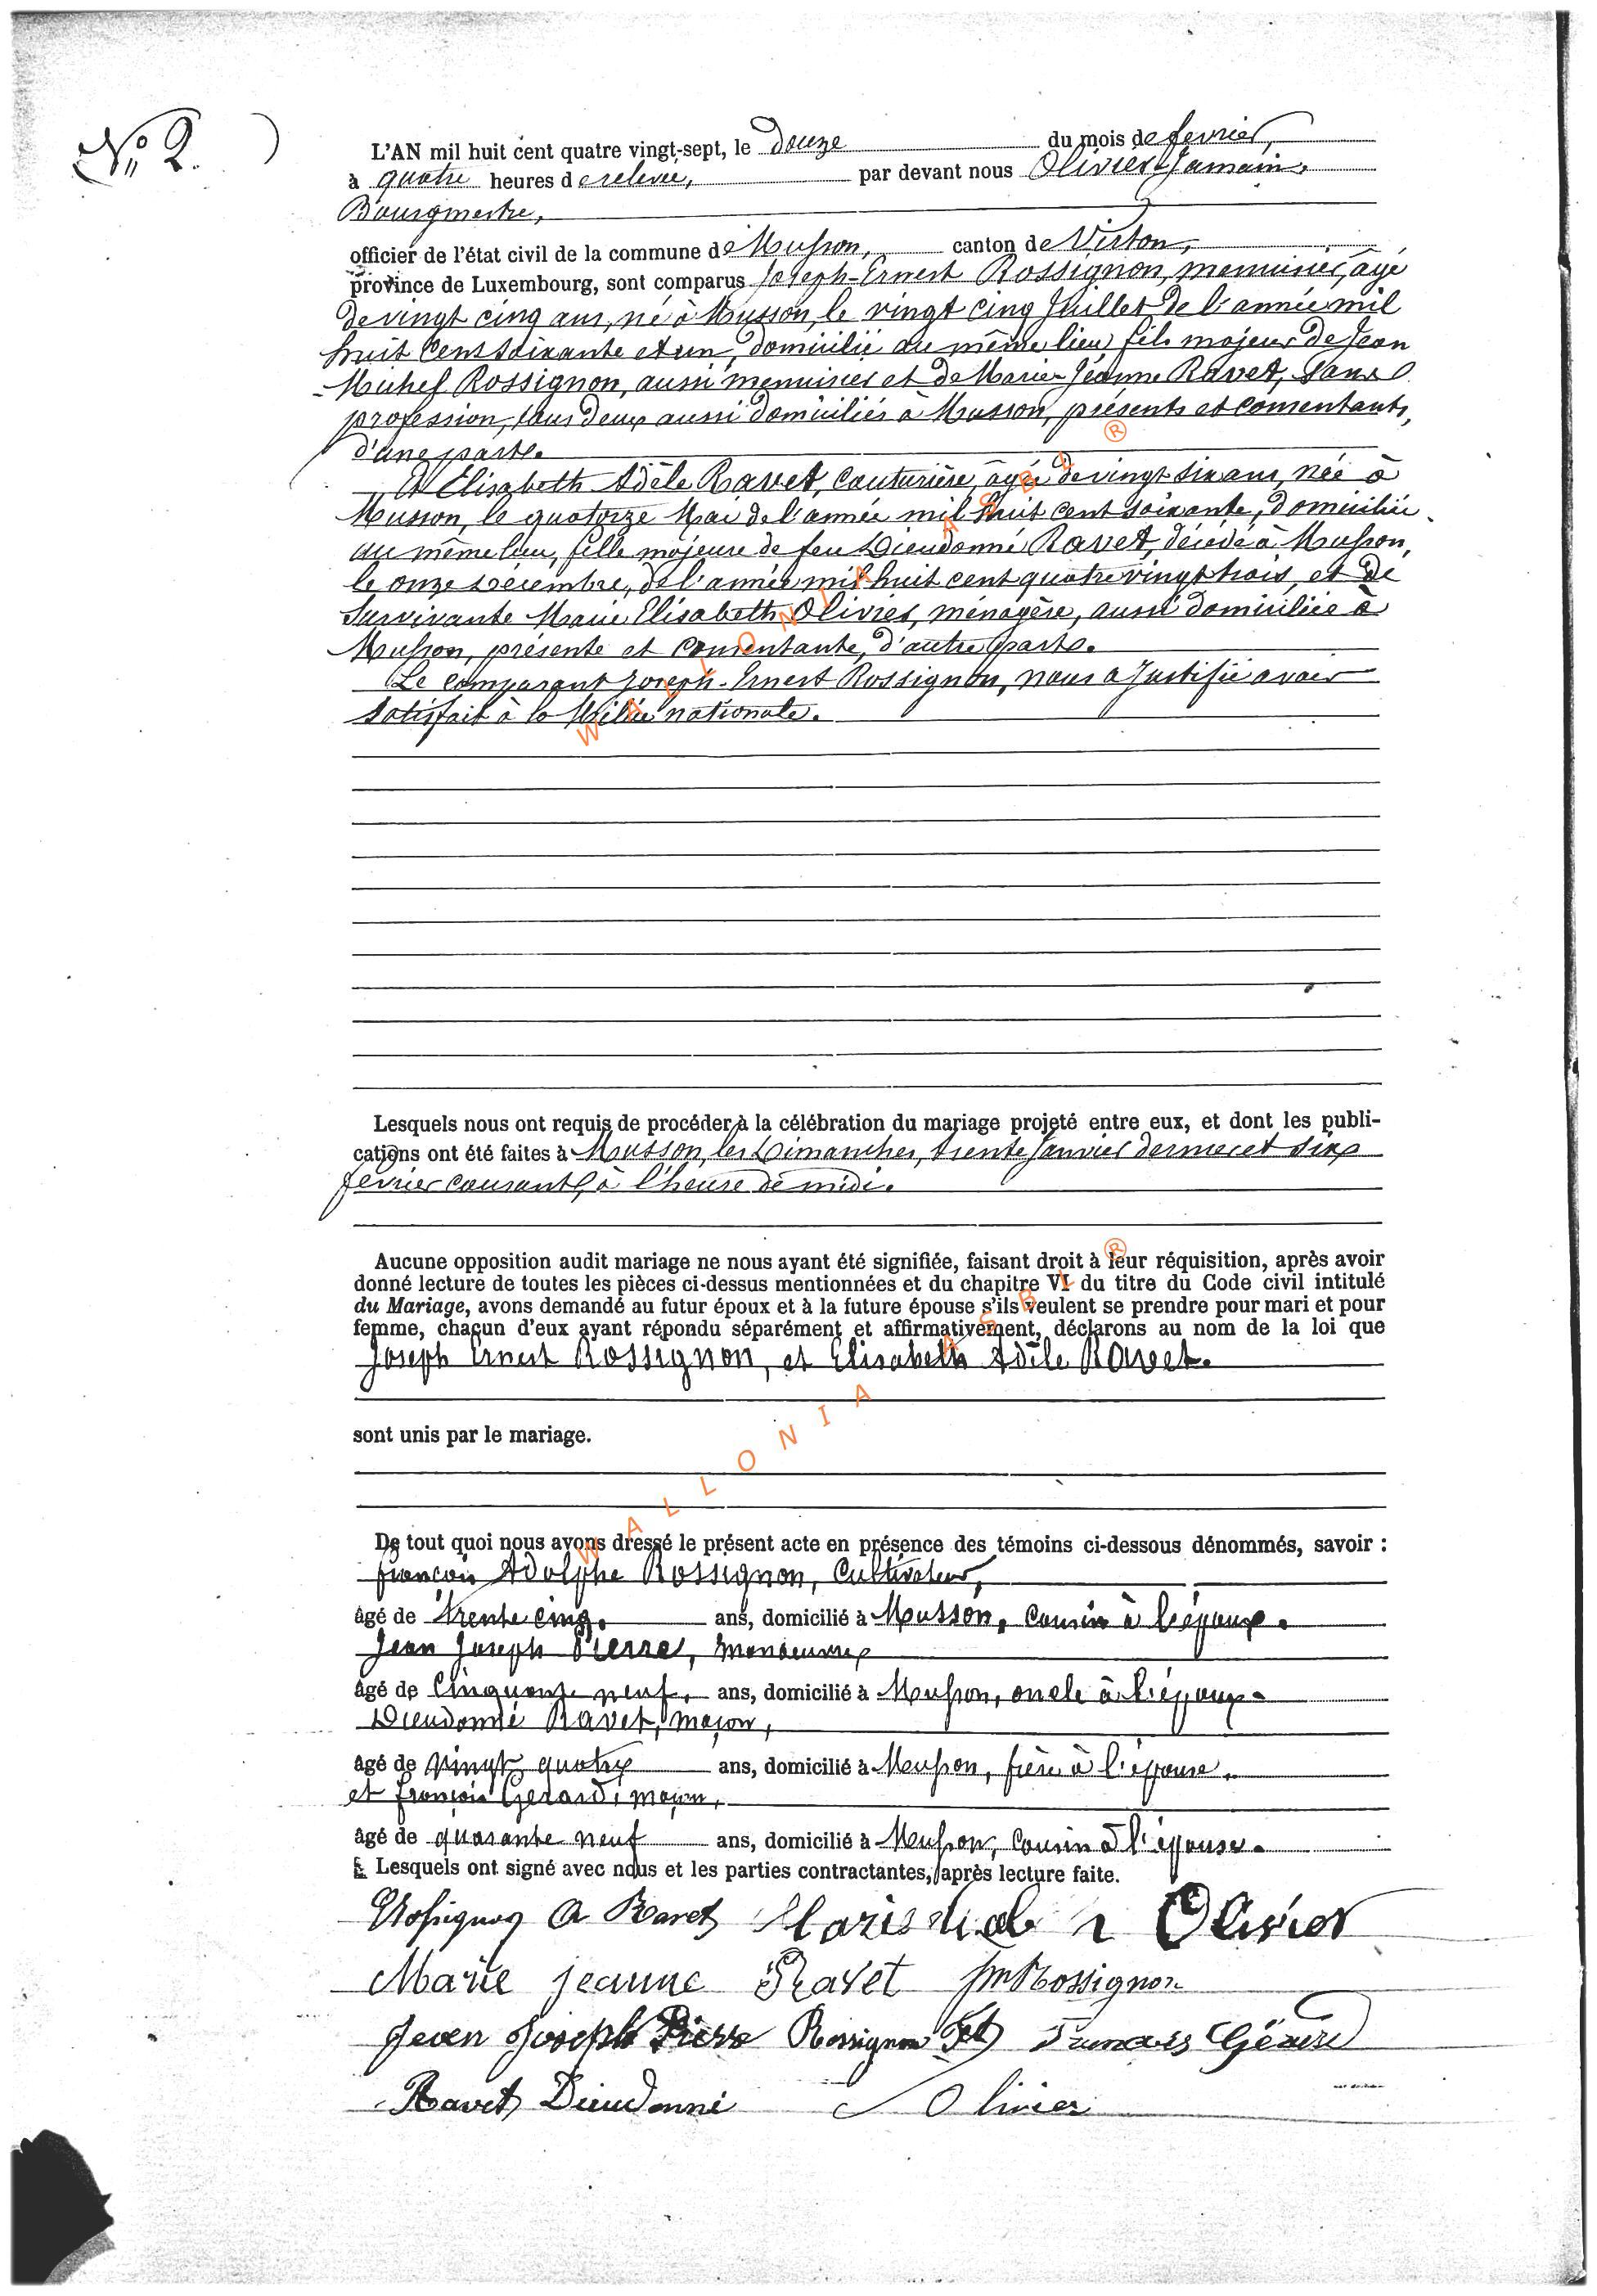 No 2.
L'AN mil huit cent quatre vingt-sept, le douze du mois de fevrier,
à quatre heures de relevée, par devant nous Olivier Jamain,
Bourgmestre,
officier de l'état civil de la commune de Musson, canton de Virton,
province de Luxembourg, sont comparus Joseph-Ernest Rossignon, menuisier, âgé
de vingt cinq ans, né à Musson, le vingt cinq Juillet de l'année mil
huit cent soixante et un, domicilié au même lieu, fils majeur de Jean
Michel Rossignon, aussi menuisier et de Marie-Jeanne Ravet, sans
profession, tous deux aussi domiciliés à Musson, présents et consentants,
d'une part.
Et Elisabeth Adèle Ravet, Couturière, âgé de vingt six ans, née à
Musson, le quatorze Mai de l'année mil huit cent soixante, domiciliée
au même lieu, fille majeure de feu Dieudonné Ravet, décédé à Musson,
le onze Décembre, de l'année mil huit cent quatre vingt trois, et de
Survivante Marie Elisabeth Olivier, ménagère, aussi domiciliée à
Musson, présente et consentante, d'autre part.
Le comparant Joseph-Ernest Rossignon, nous a justifié avoir
satisfait à la Milice nationale.
WALLONIA ASBL ®
Lesquels nous ont requis de procéder à la célébration du mariage projeté entre eux, et dont les publi-
cations ont été faites à Musson, les Dimanches, trente Janvier dernier et six
février courant, à l'heure de midi.
Aucune opposition audit mariage ne nous ayant été signifiée, faisant droit à leur réquisition, après avoir
donné lecture de toutes les pièces ci-dessus mentionnées et du chapitre VI du titre du Code civil intitulé
du Mariage, avons demandé au futur époux et à la future épouse s'ils veulent se prendre pour mari et pour
femme, chacun d'eux ayant répondu séparément et affirmativement, déclarons au nom de la loi que
Joseph Ernest Rossignon, et Elisabeth Adèle Ravet.
sont unis par le mariage.
WALLONIA ASBL ®
De tout quoi nous avons dressé le présent acte en présence des témoins ci-dessous dénommés, savoir :
françois Adolphe Rossignon, Cultivateur,
âgé de trente cinq. ans, domicilié à Musson, Cousin à l'époux.
Jean Joseph Pierre, manoeuvre
âgé de Cinquante neuf, ans, domicilié à Musson, oncle à l'époux.
Dieudonné Ravet, maçon,
âgé de vingt quatre ans, domicilié à Musson, frère à l'épouse.
et françois Gerard, maçon,
âgé de quarante neuf ans, domicilié à Musson, Cousin à l'épouse.
Lesquels ont signé avec nous et les parties contractantes, après lecture faite.
Rossignon A Ravet Olivier
Marie jeanne Ravet Jm Rossignon
Jean Joseph Pierre Rossignon Francois Gérard
Ravet Dieudonné Olivier